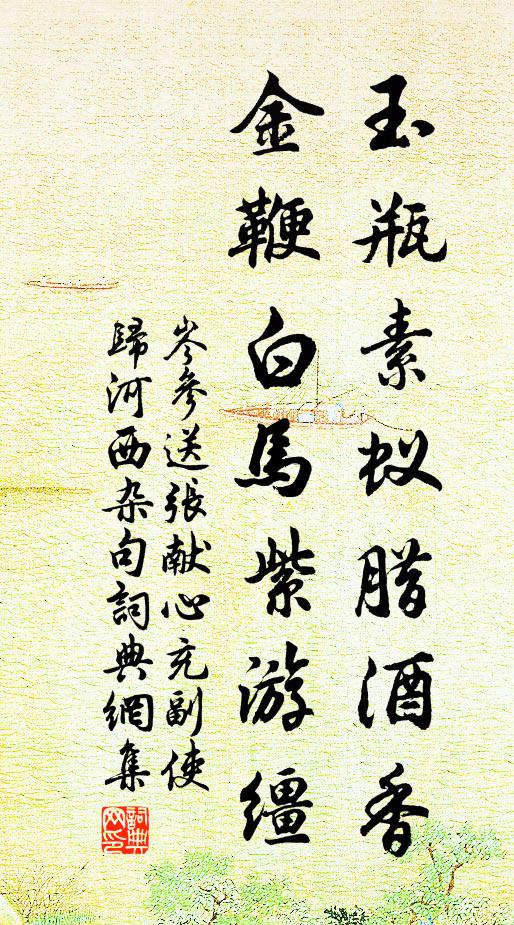 玉瓶素蚁腊酒香
金鞭白馬紫游缰
岑參送張献心充副使
歸河西杂句詞典網集
詞典
网印